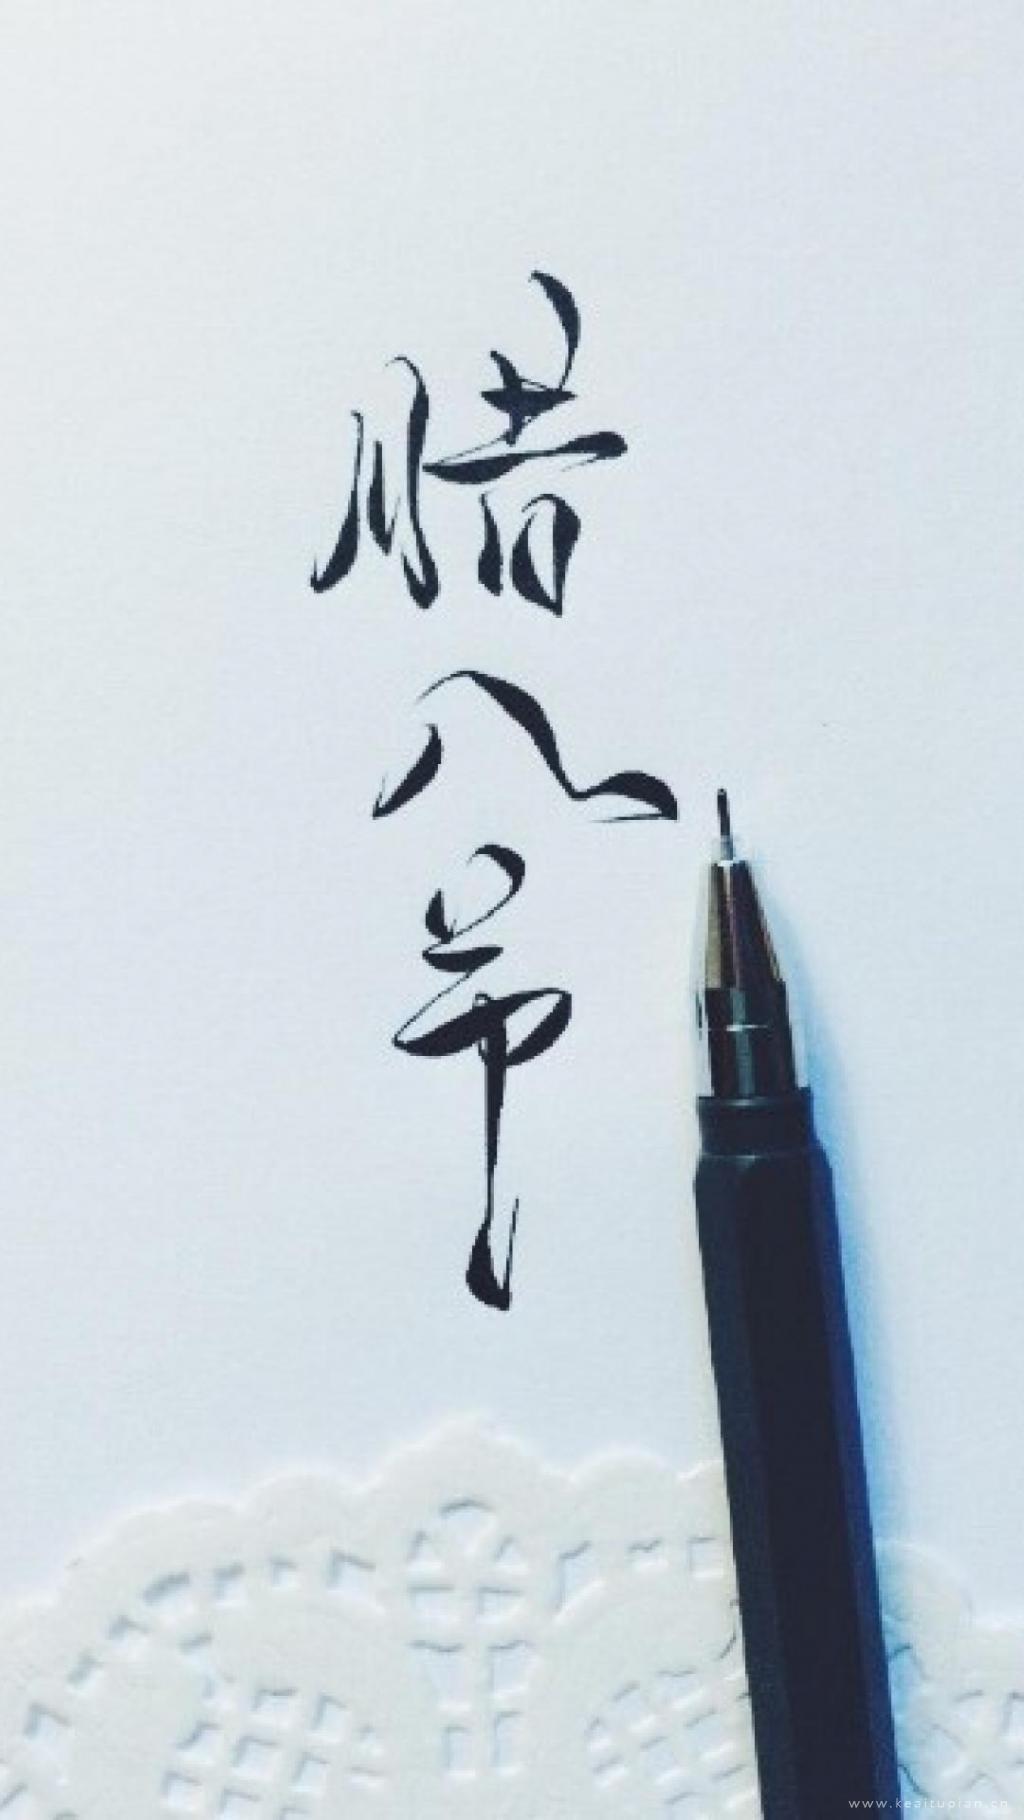 腊八节
www.keaitupian.cn